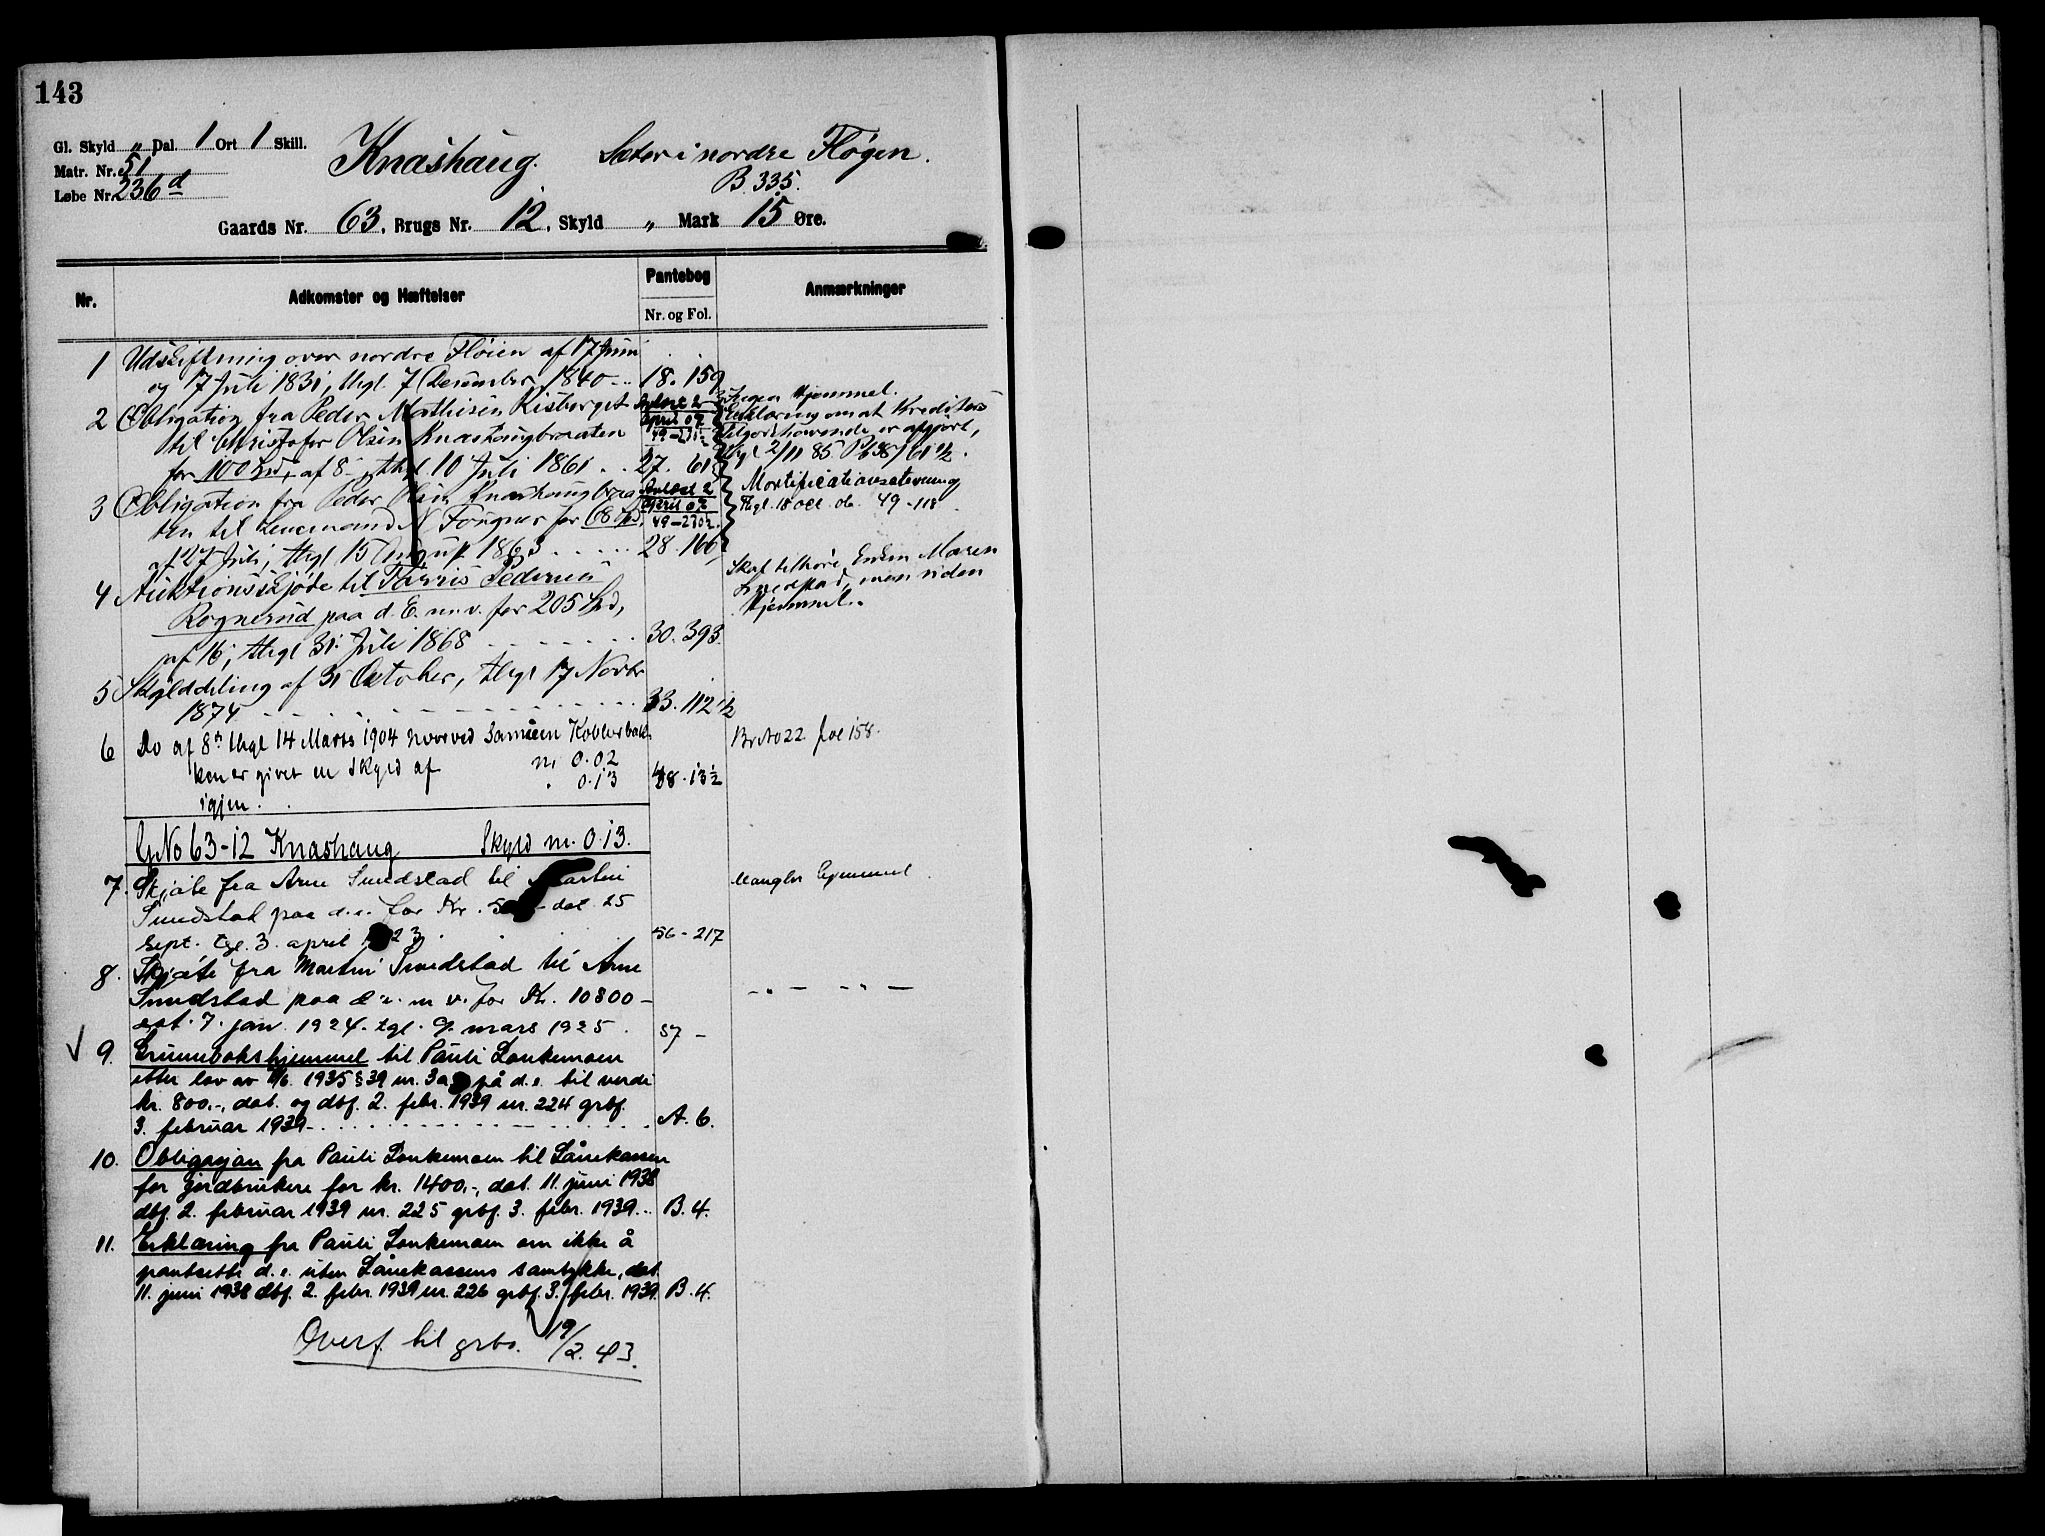 143
Gl. Skyld „ Dal. 1 Ort 1 Skill.
Matr. Nr. 51
Løbe Nr. 236 d
Knashaug. Sæter i nordre Fløgen.
B. 335.
Gaards Nr. 63, Brugs Nr. 12, Skyld „ Mark 15 Øre.
Nr.
Adkomster og Hæftelser
Pantebog
Nr. og Fol.
Anmærkninger
1 Udskiftning over nordre Fløien af 17 Juni
og 17 Juli 1831, thgl. 7 December 1840 18. 159
2 Obligation fra Peder Mathisen Risberget
til Christofer Olsen Knashaugbraaten
for 100 Spd, af 8, thgl 10 Juli 1861 27. 61
Avlæst 2
april 07
49-230½
Ingen Hjemmel.
Erklæring om at Kreditors
Tilgodehavende er afgjort,
thgl 2/11 85 Pb 38/61½.
3 Obligation fra Peder Olsen Knashaugbraa
ten til Lensmand N Fougner for 68 Spd,
af 27 Juli, thgl 15 August 1863 28. 166
Avlæst 2
april 07
49-230½.
Mortificationsstevning
Thgl. 18 oct. 06. 49-118
4 Auktionsskjøde til Torris Pedersen
Rognerud paa d. E. m. v. for 205 Spd,
af 16, thgl 31 Juli 1868 30. 393.
Skal tilhøre Enken Maren
Smedstad, men uden
Hjemmel.
5 Skylddeling af 31 October, thgl 17 Novbr
1874 33. 112½
6 Do af 8n thgl 14 Marts 1904 hvorved Sameien Koblerbak
ken er givet en Skyld af m 0.02
igjen. " 0.13 48. 13½
Br No 22 fol 158.
G No 63-12 Knashaug Skyld m. 0.13.
7. Skjøte fra Arne Smedstad til Martin
Smedstad paa d. e. for Kr. dat. 25
Sept. tgl. 3. april 23 56-217
Mangler hjemmel.
8. Skjøte fra Martin Smedstad til Arne
Smedstad paa d e. m v. for Kr. 10800-
dat. 7. jan. 1924. tgl. 9. mars 1925. 57 -
-"- -"-
9. Grunnbokshjemmel til Pauli Lonkemoen
etter lov av 7/6. 1935 § 39 nr. 3a på d. e. til verdi
kr. 800.-, dat. og dbf. 2. febr. 1939 nr. 224 grbf.
3. februar 1939 A. 6.
10. Obligasjon fra Pauli Lonkemoen til Lånekassen
for jordbrukere for kr. 1400.-, dat. 11. juni 1938
dbf. 2. februar 1939 nr. 225 grbf. 3. febr. 1939 B. 4.
11. Erklæring fra Pauli Lonkemoen om ikke å
pantsette d. e. uten Lånekassens samtykke, dat.
11. juni 1938 dbf. 2. febr. 1939 nr. 226 grbf. 3. febr. 1939. B. 4.
Overf. til grbo. 19/2. 43.